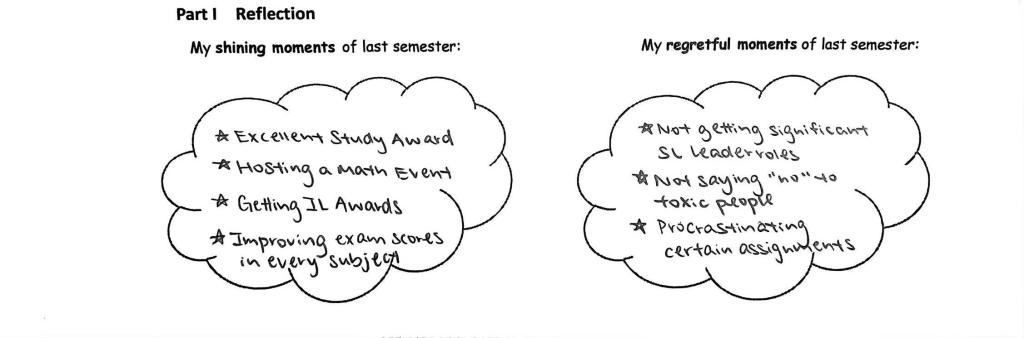 Part I Reflection
My shining moments of last semester:
☆ Excellent Study Award
☆ Hosting a Math Event
☆ Getting IL Awards
☆ Improving exam scores
in every subject
My regretful moments of last semester:
☆ Not getting significant
SL leader roles
☆ Not saying "no" to
toxic people
☆ Procrastinating
certain assignments